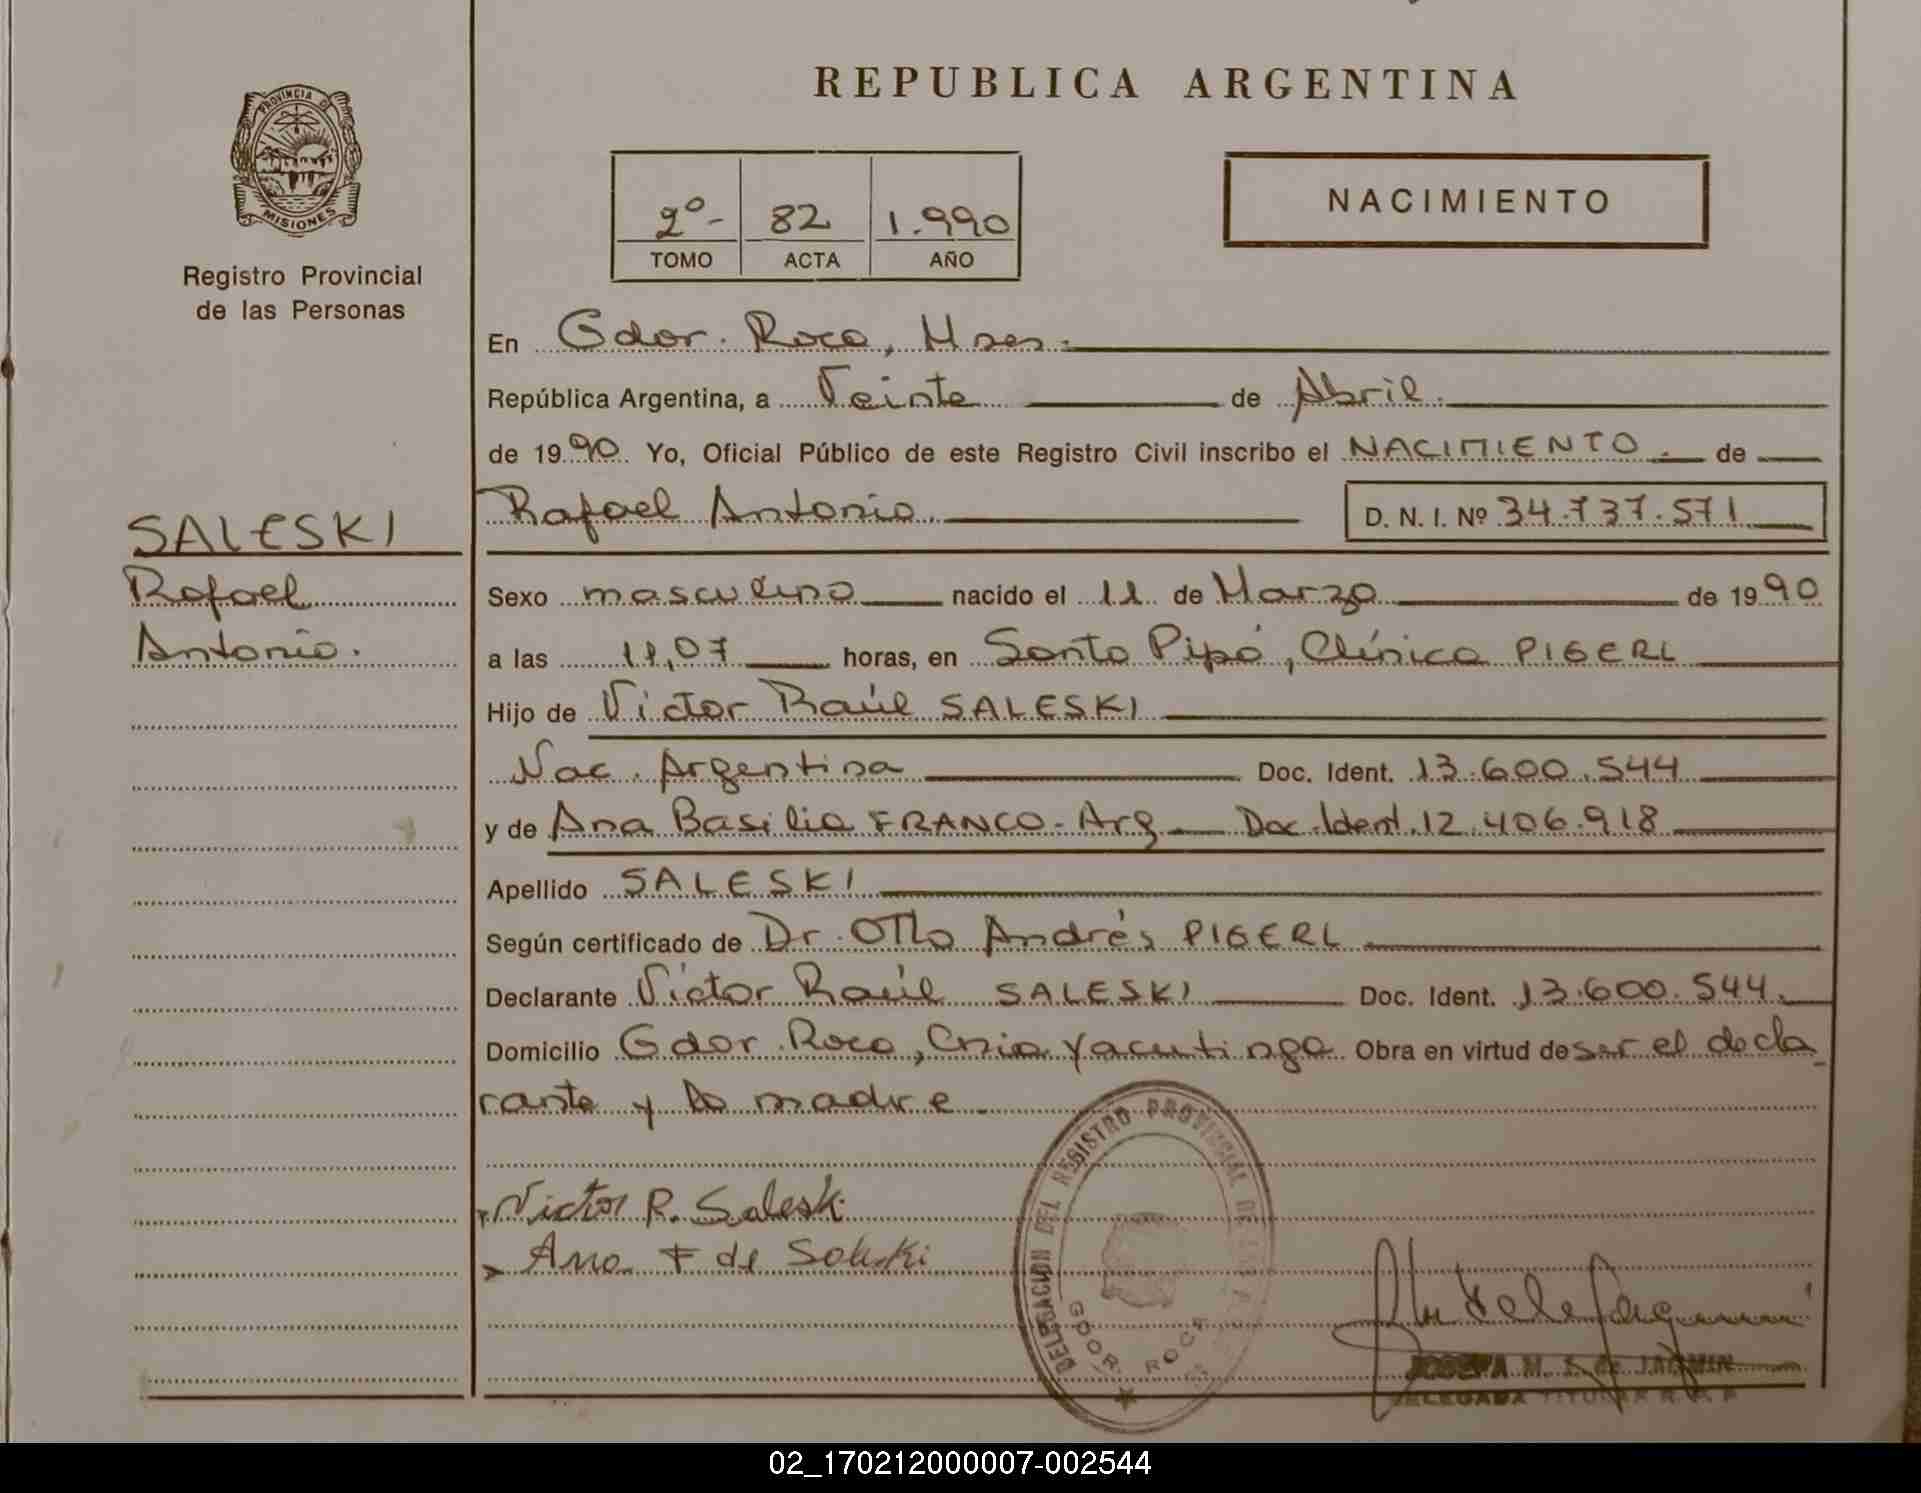 REPUBLICA ARGENTINA
PROVINCIA DE
MISIONES
Registro Provincial
de las Personas
2º- 82 1.990
TOMO ACTA AÑO
NACIMIENTO
En Gdor. Roca, Mnes.
República Argentina, a Veinte de Abril.
de 1990 Yo, Oficial Público de este Registro Civil inscribo el NACIMIENTO.- de
Rafael Antonio. D. N. I. Nº 34.737.571
SALESKI
Rafael
Antonio.
Sexo masculino nacido el 11 de Marzo de 1990
a las 11,07 horas, en Santo Pipó, Clínica PIGERL
Hijo de Victor Raúl SALESKI
Nac. Argentina Doc. Ident. 13.600.544
y de Ana Basilia FRANCO- Arg Doc. Ident. 12.406.918
Apellido SALESKI
Según certificado de Dr. Otto Andrés PIGERL
Declarante Victor Raúl SALESKI Doc. Ident. 13.600.544.
Domicilio Gdor. Roca, Cnia Yacutinga Obra en virtud de ser el decla
rante y la madre.
Victor R. Saleski
Ana F de Saleski
DELEGACION DEL REGISTRO PROVINCIAL DE LAS
GDOR. ROCA
JOSEFA M. de JACMIN
DELEGADA TITULAR R. P. P
02_170212000007-002544